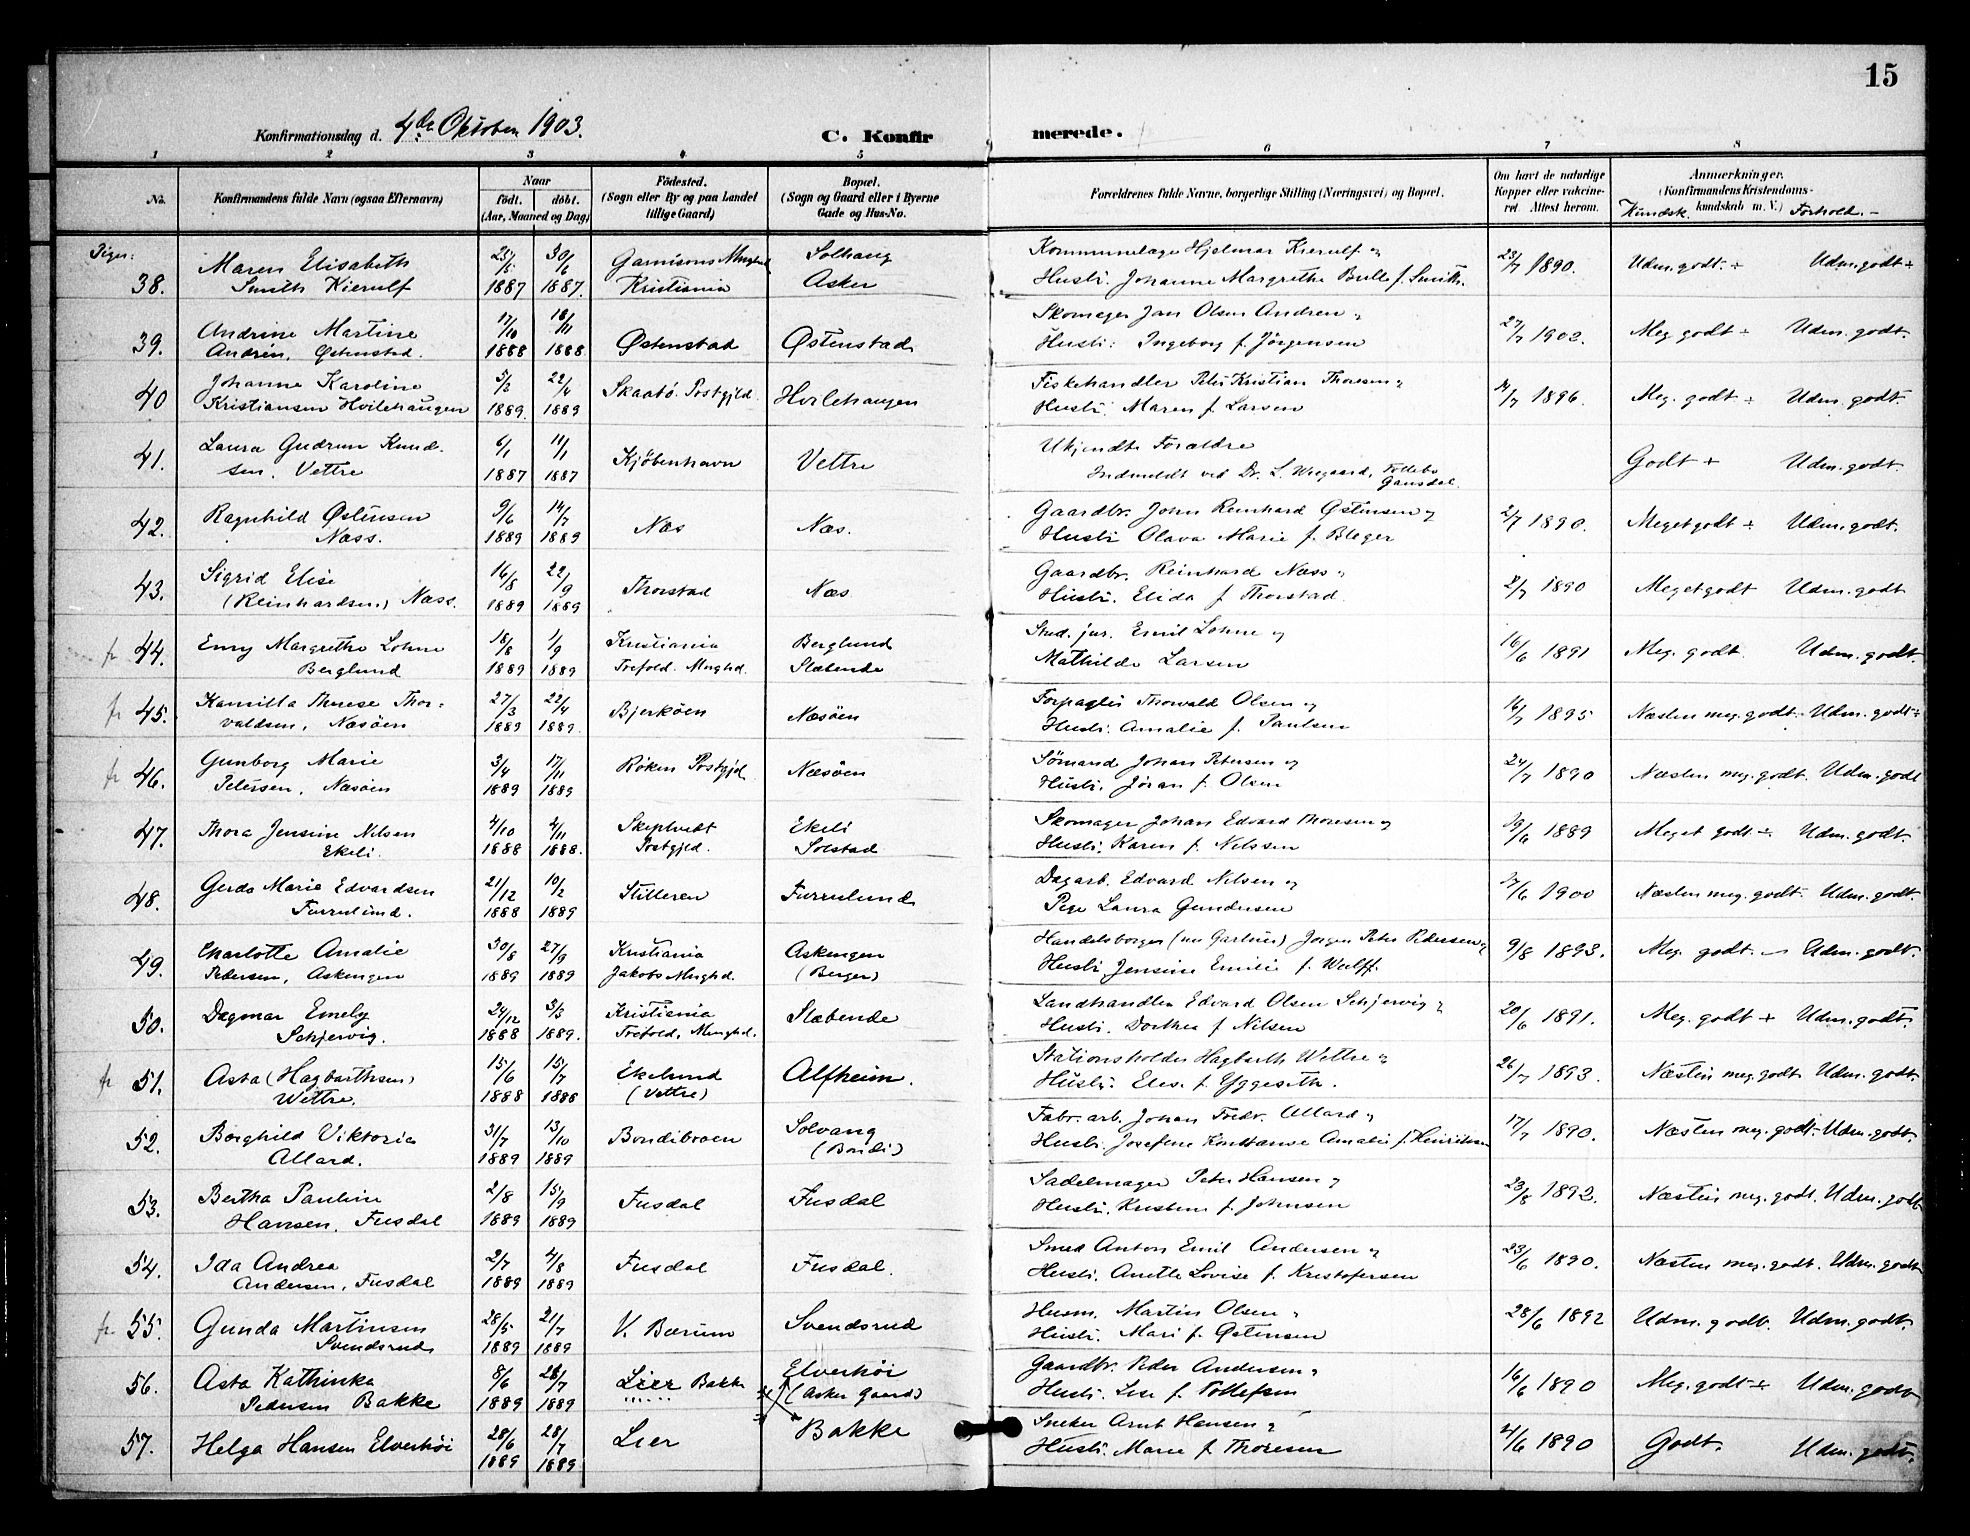 15
Konfirmationsdag d. 4de Oktober 1903.
C. Konfirmerede.
1 2 3 4 5 6 7 8
No.
Konfirmandens fulde Navn (ogsaa Efternavn)
Naar
født. døbt.
(Aar, Maaned og Dag)
Fødested.
(Sogn eller By og paa Landet
tillige Gaard)
Bopæl.
(Sogn og Gaard eller i Byerne
Gade og Hus-No.
Forældrenes fulde Navne, borgerlige Stilling (Næringsvei) og Bopæl.
Om havt de naturlige
Kopper eller vakcine-
ret. Attest herom.
Anmærkninger.
(Konfirmandens Kristendoms-
kundskab m. V.)
Kundsk. Forhold.
Piger:
38. Maren Elisabeth 23/5 30/6 Garnisons Mnghd Solhaug Hjelmar Kierulf 23/7 1890. Udm. godt. ÷ Udm. godt ÷
Smith Kierulf 1887 1887. Kristiania Asker Hustr. Johanne Margrethe Bull f. Smith.
39. Andrine Martine 17/10 18/11 Østenstad Østenstad Skomager Jan Olsen Andren 27/7 1902. Meg godt ÷ Udm. godt.
Andrén, Østenstad. 1888 1888. Hustr: Ingeborg f. Jörgensen
40 Johanne Karoline 22/4 Skaatö Prstgjld. Hvilehaugen Fiskehandler Peter Kristian Thoresen 1896. Meg. godt ÷ Udm. godt.
Kristiansen Hvilehaugen 1889. 1889 Hustr. Maren f. Larsen
41. Laura Gudrun Knud- 6/1 11/1 Kjøbenhavn Vettre Ukjendte Forældre Godt + Udm. godt.
sen, Vettre 1887 1887 Indmeldt ved Dr. L.
42. Ragnhild Østensen 9/6 14/7 Næs Næs. Gaardbr. John Reinhard Østensen 2/7 1890. Meget godt ÷ Udm. godt.
Næss. 1889 1889 Hustr Olava Marie f. Bleger
43. Sigrid Elise 16/8 22/9 Thorstad Næs Gaardbr. Reinhard Næss 2/7 1890 Meget godt Udm. godt
(Reinhardsen) Næss. 1889 1889 Hustr. Elida f. Thorstad.
fr 44. Emy Margrethe Lohne 18/8 1/9 Kristiania Berglund Stud. jur. Emil Lohne og 16/6 1891 Meg. godt. Udm. godt.
Berglund 1889 1889 Trefold. Mnghd. Slæbende Mathilde Larsen
fr 45. Kamilla Therese Thor- 27/3 22/4 Bjerköen Næsöen Forpagter Thorvald Olsen og 16/7 1895 Næsten meg. godt. Udm. godt ÷
valdsen, Næsöen 1889 1889. Hustr. Amalie f. Paulsen
fr 46. Gunborg Marie 3/4 17/11 Röken Prstgjld Næsöen Sömand Johan Petersen og 24/7 1890 Næsten meg. godt. Udm. godt
Petersen, Næsöen 1889 1889 Hustr. Jöran f. Olsen
47. Thora Jensine Nilsen 4/10 4/11 Skiptvedt Ekeli Skomager Johan Edvard Thoresen og 1889 Meget godt ÷ Udm. godt.
Ekeli. 1888 1888. Prstgjld. Solstad Hustr. Karen f. Nilssen
48. Gerda Marie Edvardsen 21/12 10/2 Stilleren Furrulund Dagarb. Edvard Nilsen og 1900 Næsten meg. godt. Udm. godt.
Furrulund. 1888 1889 Pige Laura Gundersen
49. Charlotte Amalie 30/8 27/9 Kristiania Askengen Handelsborger (nu Gartner) Jörgen Peter Pedersen 9/8 1893. Meg. godt Udm. godt.
Pedersen, Askengen 1889 1889 Jakobs Mnghd. (Berger) Hustr. Jensine Emilie f. Wulff.
50. Dagmar Emely 24/12 3/3 Kristiania Slæbende Landhandler Edvard Olsen Schjervig 20/6 1891. Meg. godt + Udm. godt.
Schjervig. 1888 1889. Trefold. Mnghd. Hustr. Dorthea f. Nilsen
fr 51. Asta (Hagbarthsen) 15/6 15/7 Ekelund Alfheim. Stationsholder Hagbarth Wettre 26/7 1893. Næsten meg. godt Udm. godt.
Wettre. 1888 1888 (Vettre) Hustr. Elise f. Yggeseth.
52. Borghild Viktoria 31/7 13/10 Bondibroen Solvang Fabr. arb. Johan Fredr. Allard 17/7 1890. Næsten meg. godt. Udm. godt.
Allard. 1889 1889 (Bondi) Hustr. Josefine Konstanse Amalie f. Hinriksen
53. Bertha Pauline 2/8 15/9 Fusdal Fusdal Sadelmager Peter Hansen 23/8 1892. Næsten meg. godt. Udm. godt
Hansen, Fusdal 1889 1889 Hustr. Kristine f. Johnsen
54. Ida Andrea 2/7 4/8 Fusdal Fusdal. Smed Anton Emil Andersen 23/6 1890. Næsten meg. godt. Udm. godt
Andersen, Fusdal 1889 1889 Hustr. Anette Lovise f. Kristofersen
fr 55. Gunda Martinsen 28/5 21/7 V. Bærum Svendsrud Husm. Martin Olsen 28/6 1892 Udm. godt. Udm. godt.
Svendsrud 1889 1889 Hustr. Mari f. Østensen
56. Asta Kathinka 8/6 28/7 Lier Bakke Elverhöi Gaardbr. Peder Andersen 16/6 1890 Meg. godt ÷ Udm. godt
Pedersen Bakke 1889 1889 (Asker Gaard) Hustr. Lise f. Tollefsen
57. Helga Hansen Elverhöi 28/6 28/7 Lier Bakke Sneker Arnt Hansen 4/6 1890 Godt. Udm. godt.
1889 1889 Hustr. Marie f. Thoresen